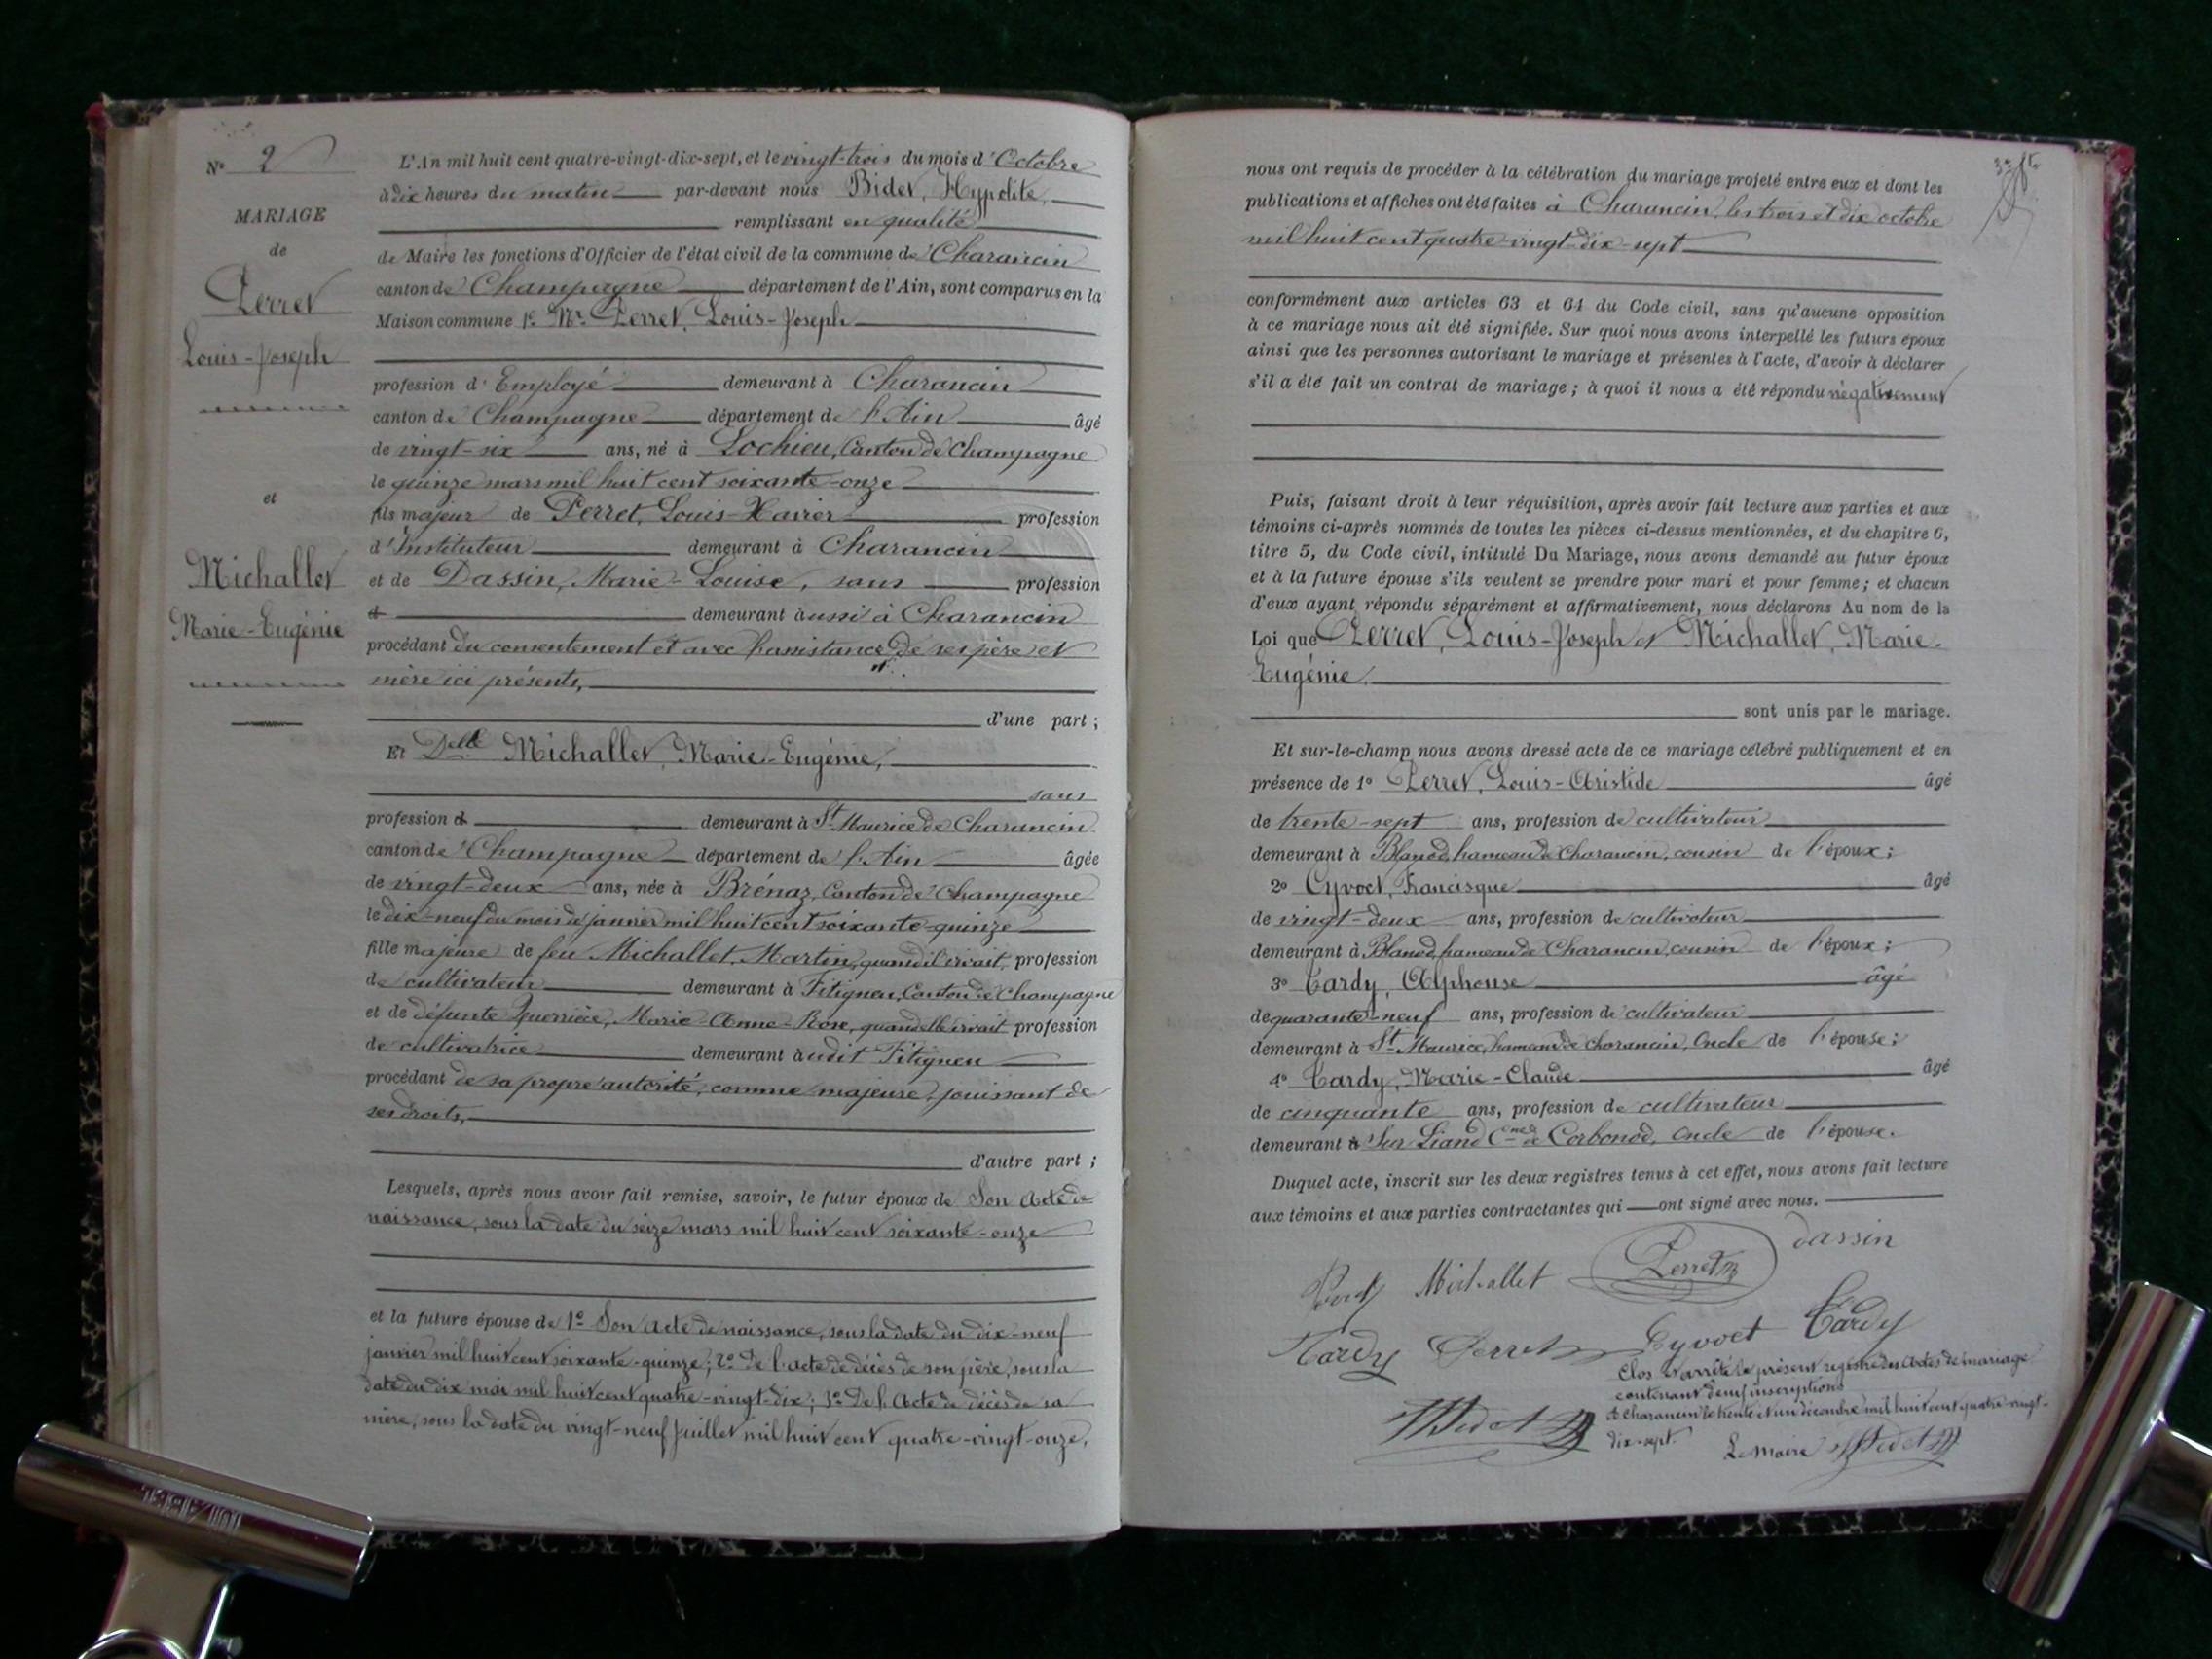 N° 2
MARIAGE
de
Perret
Louis-Joseph
et
Michallet
Marie-Eugénie
L'An mil huit cent quatre-vingt-dix-sept, et le vingt-trois du mois d'Octobre
à dix heures du matin par-devant nous Bidet, Hypolite,
remplissant en qualité
de Maire les fonctions d'Officier de l'état civil de la commune de Charancin
canton de Champagne département de l'Ain, sont comparus en la
Maison commune 1° Mr Perret, Louis-Joseph
profession d'Employé demeurant à Charancin
canton de Champagne département de l'Ain âgé
de vingt-six ans, né à Lochieu, Canton de Champagne
le quinze mars mil huit cent soixante-onze
fils majeur de Perret, Louis-Xavier profession
d'Instituteur demeurant à Charancin
et de Dassin, Marie-Louise, sans profession
d demeurant aussi à Charancin
procédant du consentement et avec l'assistance de ses père et
mère ici présents,
d'une part ;
Et Delle Michallet, Marie-Eugénie,
sans
profession d demeurant à St Maurice de Charancin
canton de Champagne département de l'Ain âgée
de vingt-deux ans, née à Brénaz, Canton de Champagne
le dix-neuf du mois de janvier mil huit cent soixante-quinze
fille majeure de feu Michallet, Martin, quand il vivait, profession
de cultivateur demeurant à Fitigneu, Canton de Champagne
et de défunte Guerrière, Marie-Anne-Rose, quand elle vivait profession
de cultivatrice demeurant audit Fitigneu
procédant de sa propre autorité, comme majeure, jouissant de
ses droits,
d'autre part ;
Lesquels, après nous avoir fait remise, savoir, le futur époux de Son Acte de
naissance, sous la date du seize mars mil huit cent soixante-onze
et la future épouse de 1° Son Acte de naissance, sous la date du dix-neuf
janvier mil huit cent soixante-quinze ; 2° De l'acte de décès de son père, sous la
date du dix mai mil huit cent quatre-vingt-dix ; 3° De l'Acte de décès de sa
mère, sous la date du vingt-neuf Juillet mil huit cent quatre-vingt-onze,
nous ont requis de procéder à la célébration du mariage projeté entre eux et dont les
publications et affiches ont été faites à Charancin, les trois et dix octobre
mil huit cent quatre-vingt-dix-sept
conformément aux articles 63 et 64 du Code civil, sans qu'aucune opposition
à ce mariage nous ait été signifiée. Sur quoi nous avons interpellé les futurs époux
ainsi que les personnes autorisant le mariage et présentes à l'acte, d'avoir à déclarer
s'il a été fait un contrat de mariage ; à quoi il nous a été répondu négativement
Puis, faisant droit à leur réquisition, après avoir fait lecture aux parties et aux
témoins ci-après nommés de toutes les pièces ci-dessus mentionnées, et du chapitre 6,
titre 5, du Code civil, intitulé Du Mariage, nous avons demandé au futur époux
et à la future épouse s'ils veulent se prendre pour mari et pour femme ; et chacun
d'eux ayant répondu séparément et affirmativement, nous déclarons Au nom de la
Loi que Perret, Louis-Joseph et Michallet, Marie-
Eugénie.
sont unis par le mariage.
Et sur-le-champ nous avons dressé acte de ce mariage célébré publiquement et en
présence de 1° Perret, Louis-Aristide âgé
de trente-sept ans, profession de cultivateur
demeurant à Blanod, hameau de Charancin, cousin de l'époux ;
2° Cyvoct, Francisque âgé
de vingt-deux ans, profession de cultivateur
demeurant à Blanod, hameau de Charancin, cousin de l'époux ;
3° Tardy, Alphonse âgé
de quarante-neuf ans, profession de cultivateur
demeurant à St Maurice, hameau de Charancin, Oncle de l'épouse ;
4° Tardy, Marie-Claude âgé
de cinquante ans, profession de cultivateur
demeurant à Sur Liand Cne de Corbonod, Oncle de l'épouse.
Duquel acte, inscrit sur les deux registres tenus à cet effet, nous avons fait lecture
aux témoins et aux parties contractantes qui ont signé avec nous.
Michallet Perret dassin
Tardy Perret Cyvoct Tardy
Clos et arrêté le présent registre des Actes de mariage
contenant deux inscriptions
A Charancin le trente et un décembre mil huit cent quatre-vingt-
dix-sept.
Le Maire Bidet
Bidet